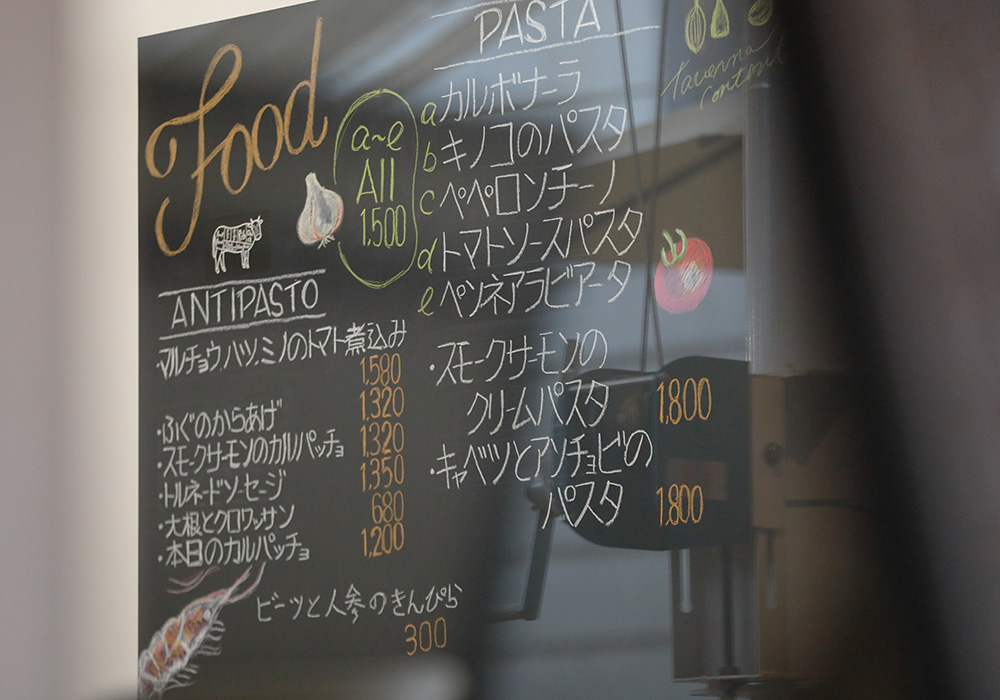 Food
ANTIPASTO
・マルチョウ、ハツ、ミノのトマト煮込み
1,580
・ふぐのからあげ 1,320
・スモークサーモンのカルパッチョ 1,320
・トルネードソーセージ 1,350
・大根とクロワッサン 680
・本日のカルパッチョ 1,200
ビーツと人参のきんぴら
300
PASTA
a~e
All
1,500
a カルボナーラ
b キノコのパスタ
c ペペロンチーノ
d トマトソースパスタ
e ペンネアラビアータ
・スモークサーモンの
クリームパスタ 1,800
・キャベツとアンチョビの
パスタ 1,800
taverna